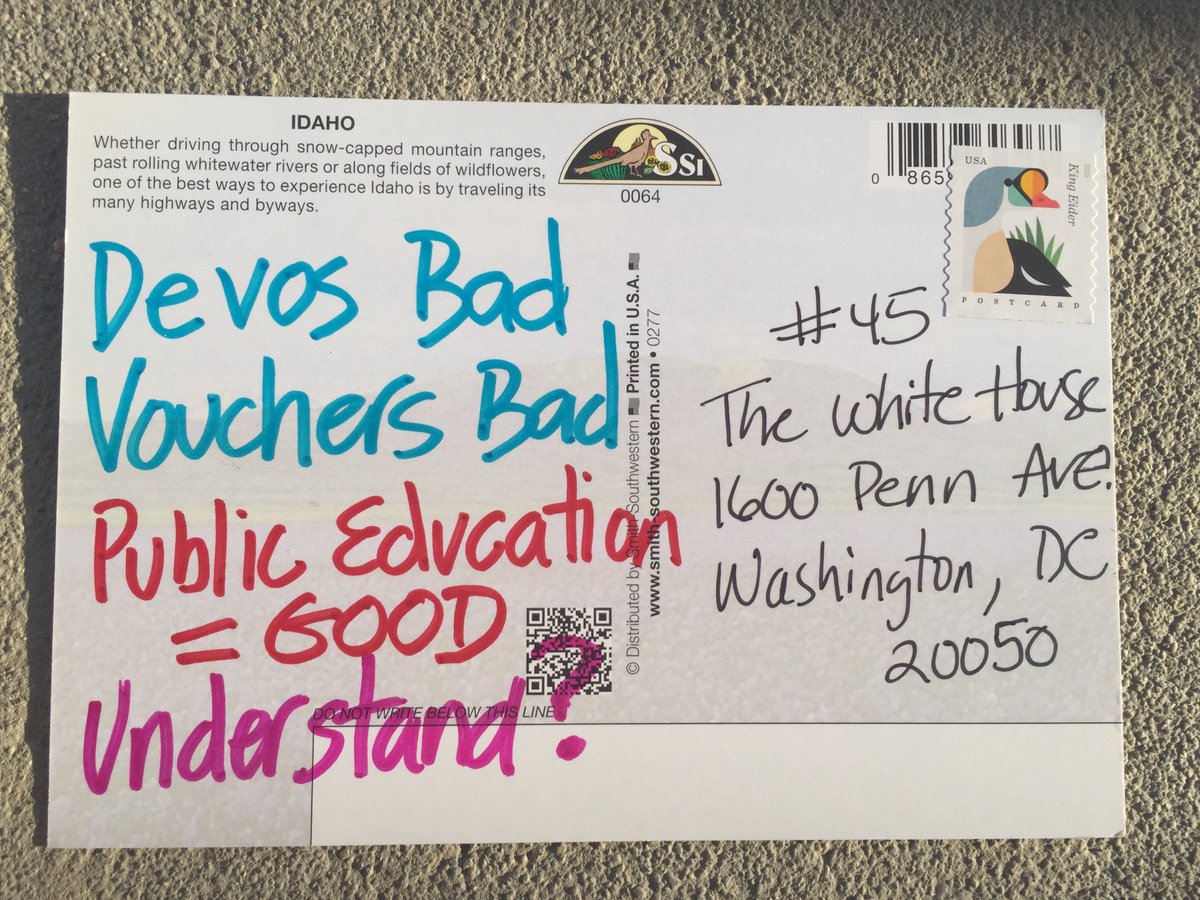 IDAHO
Whether driving through snow-capped mountain ranges,
past rolling whitewater rivers or along fields of wildflowers,
one of the best ways to experience Idaho is by traveling its
many highways and byways.
SSI
0064
0 865
USA
2015
King Eider
POSTCARD
Devos Bad
Vouchers Bad
Public Education
= GOOD
Understand?
DO NOT WRITE BELOW THIS LINE
© Distributed by Smith-Southwestern Printed in U.S.A.
www.smith-southwestern.com • 0277
#45
The White House
1600 Penn Ave.
Washington, DC
20050